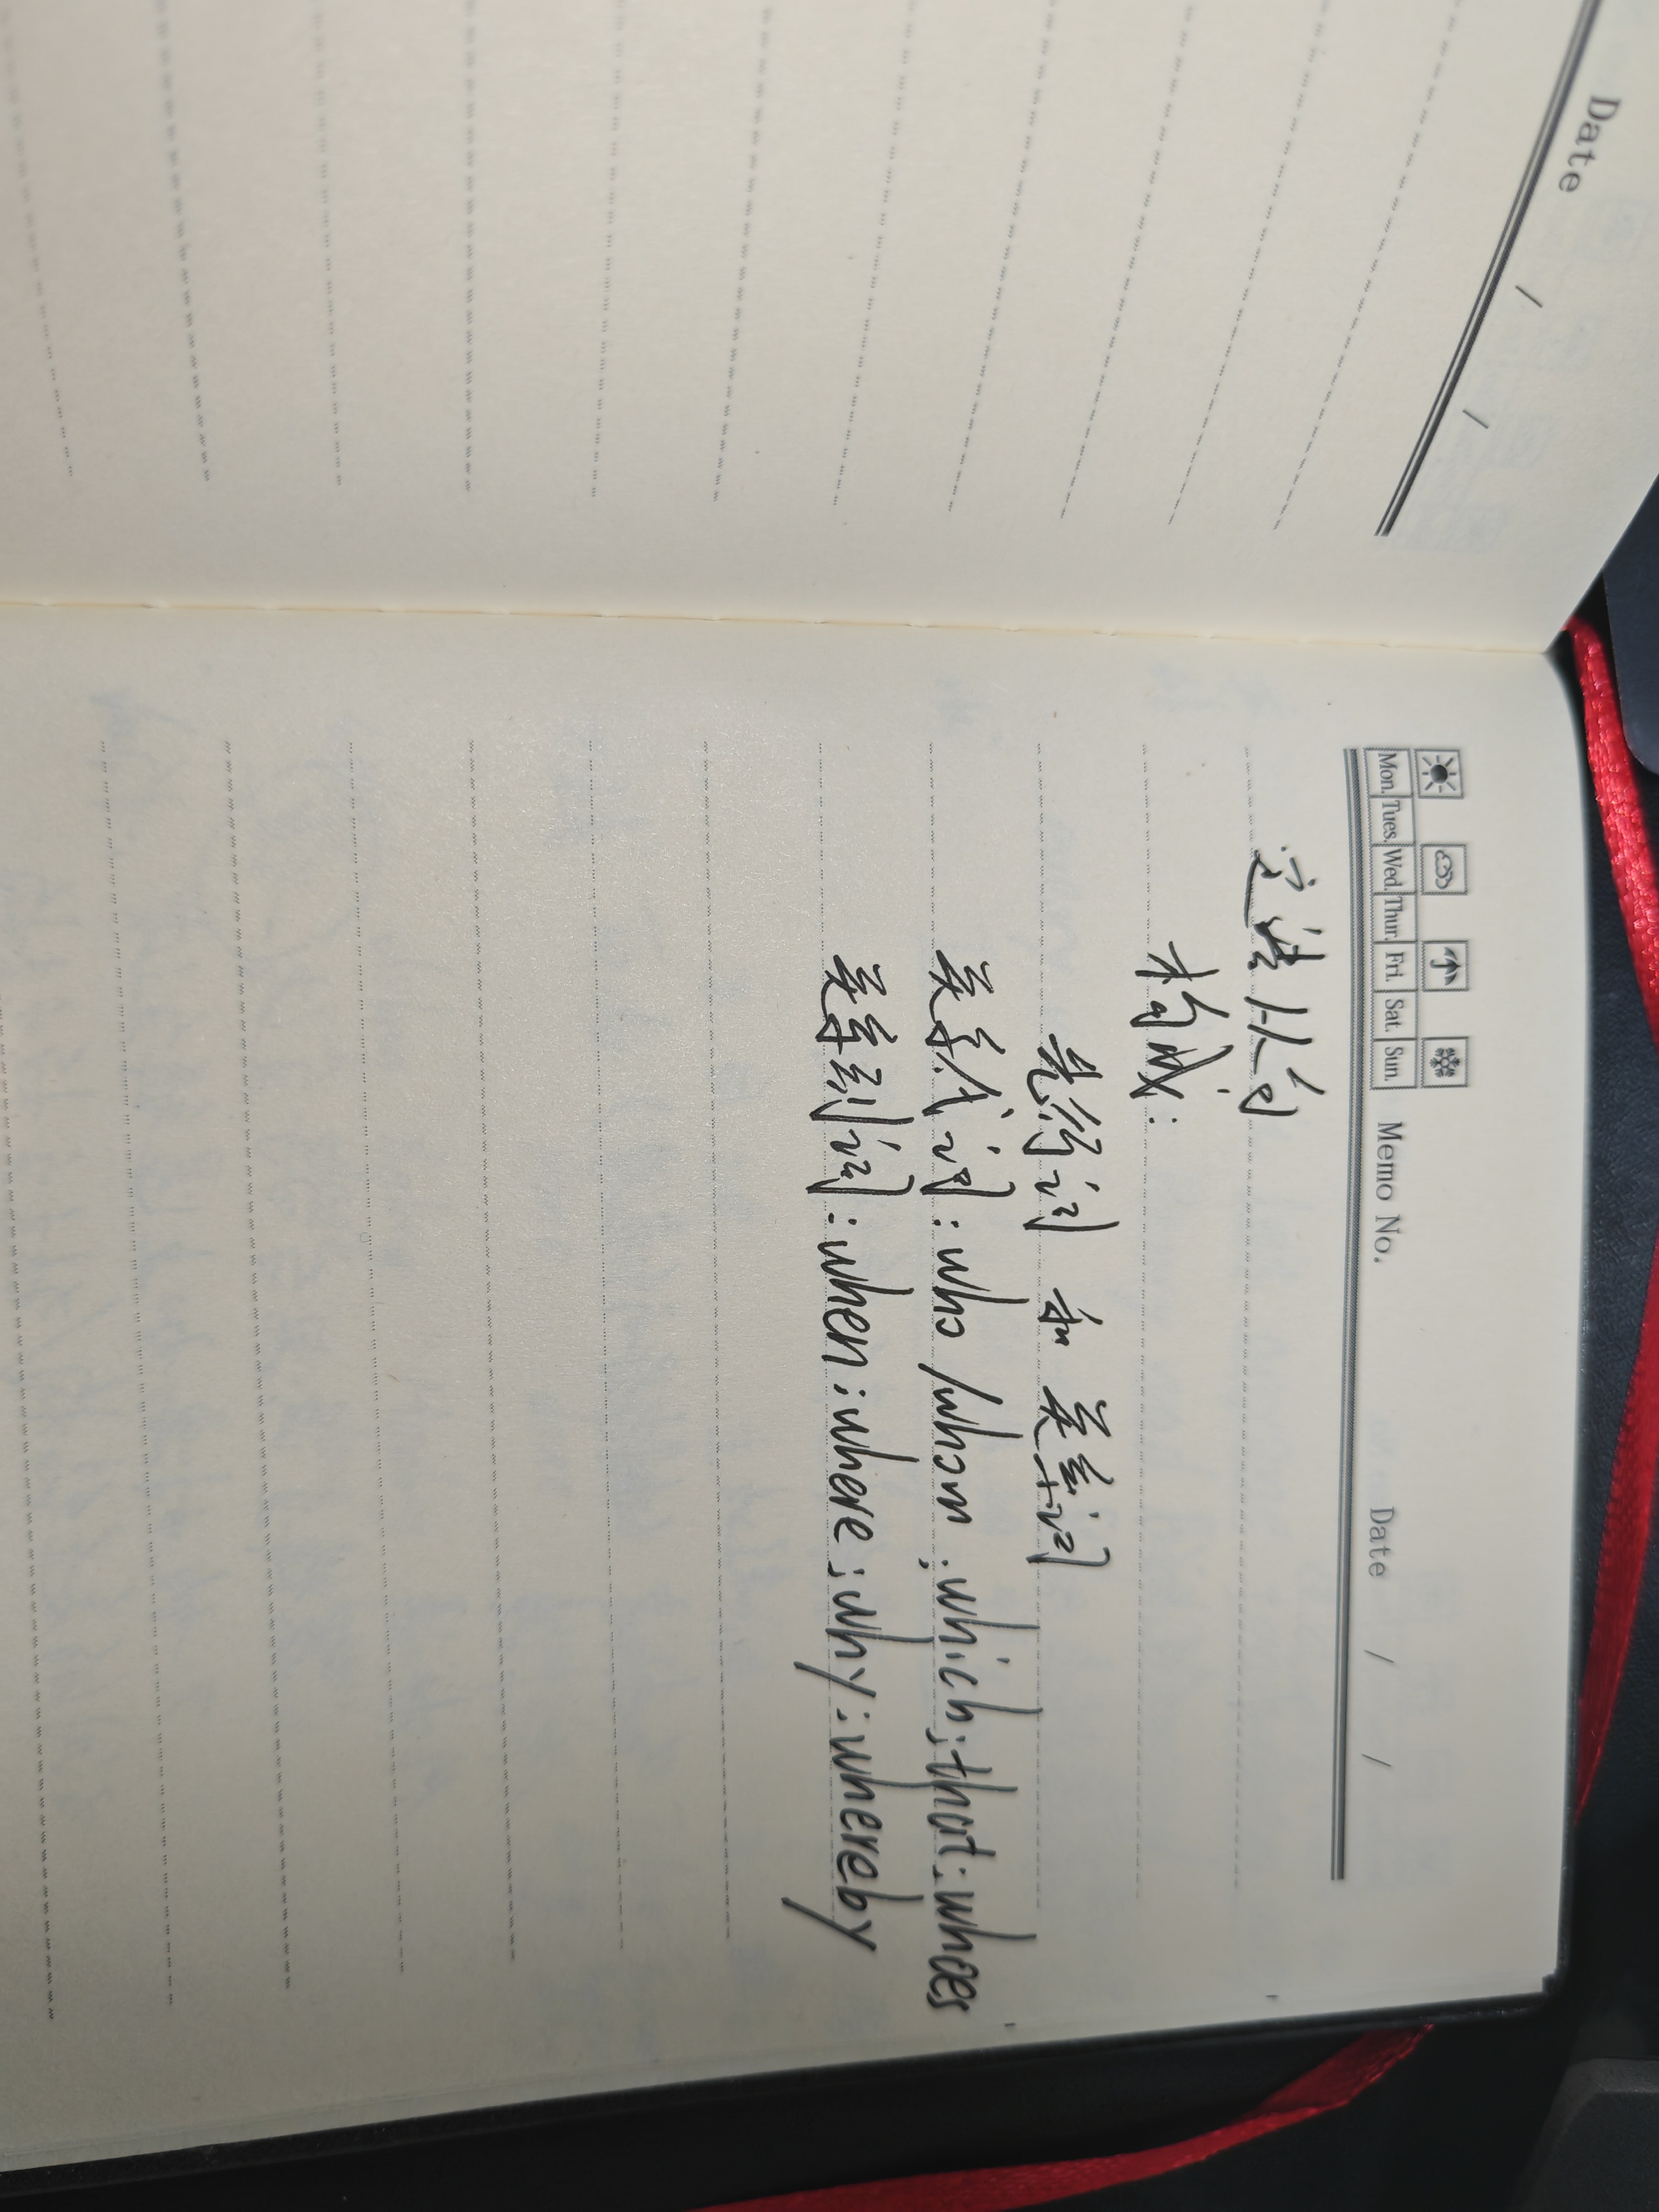 Date / /
Mon. Tues. Wed. Thur. Fri. Sat. Sun. Memo No. Date / /
定语从句
构成:
先行词 和 关系词
关系代词: who / whom ; which ; that ; whoes
关系副词: when ; where ; why ; whereby